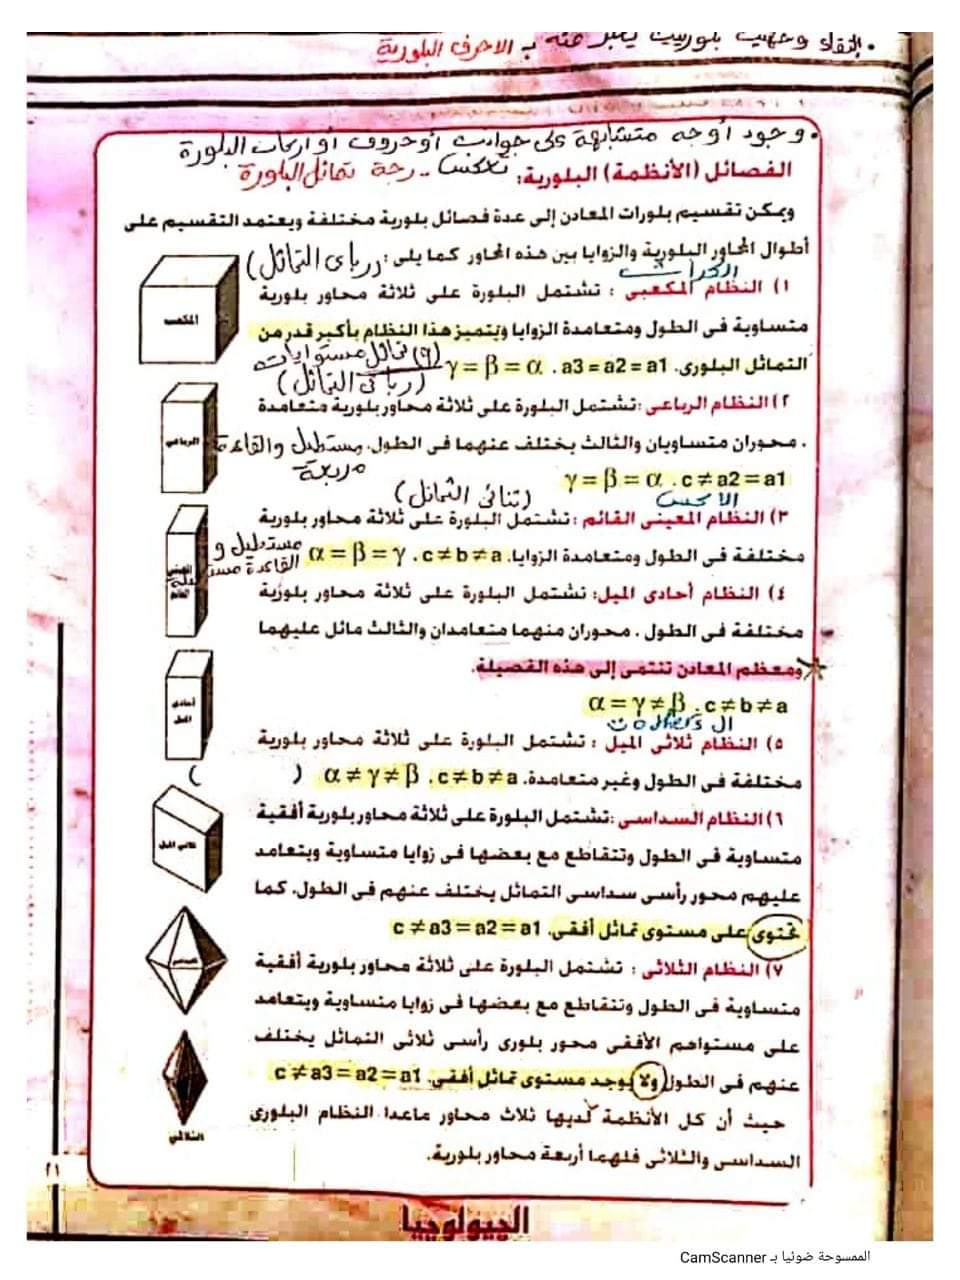 • بالتقاء وجهين بلوريين يعبر عنه بـ الاحرف البلورية
• وجود أوجه متشابهة على جوانب أو حروف أو اركان البلورة
تعكس .. درجة تماثل البلورة
الفصائل (الأنظمة) البلورية:
ويمكن تقسيم بلورات المعادن إلى عدة فصائل بلورية مختلفة ويعتمد التقسيم على
أطوال المحاور البلورية والزوايا بين هذه المحاور كما يلى :
(رباى التماثل)
١) النظام المكعبى : تشتمل البلورة على ثلاثة محاور بلورية
متساوية فى الطول ومتعامدة الزوايا ويتميز هذا النظام بأكبر قدر من
التماثل البلورى. a3 = a2 = a1 . γ = β = α
(٩) تماثل مستويات
(رباعى التماثل)
المكعب
٢) النظام الرباعى :تشتمل البلورة على ثلاثة محاور بلورية متعامدة
. محوران متساويان والثالث يختلف عنهما فى الطول.
مستطيل والقاعدة
مربعة
γ = β = α .c ≠ a2 = a1
الرباعي
(ثنائى التماثل)
٣) النظام المعينى القائم : تشتمل البلورة على ثلاثة محاور بلورية
مختلفة فى الطول ومتعامدة الزوايا. α = β = γ .c ≠ b ≠ a
مستطيل و
القاعدة مستطيلة
المعيني القائم
٤) النظام أحادى الميل: تشتمل البلورة على ثلاثة محاور بلورية
مختلفة فى الطول . محوران منهما متعامدان والثالث مائل عليهما
ومعظم المعادن تنتمى إلى هذه الفصيلة.
α = γ ≠ β .c ≠ b ≠ a
أحادى الميل
٥) النظام ثلاثى الميل : تشتمل البلورة على ثلاثة محاور بلورية
مختلفة فى الطول وغير متعامدة. α ≠ γ ≠ β .c ≠ b ≠ a ( )
ثلاثي الميل
٦) النظام السداسى :تشتمل البلورة على ثلاثة محاور بلورية أفقية
متساوية فى الطول وتتقاطع مع بعضها فى زوايا متساوية ويتعامد
عليهم محور رأسى سداسى التماثل يختلف عنهم فى الطول. كما
تحتوى على مستوى تماثل أفقى. c ≠ a3 = a2 = a1
السداسي
٧) النظام الثلاثى : تشتمل البلورة على ثلاثة محاور بلورية أفقية
متساوية فى الطول وتتقاطع مع بعضها فى زوايا متساوية ويتعامد
على مستواهم الأفقى محور بلورى رأسى ثلاثى التماثل يختلف
عنهم فى الطول ولا يوجد مستوى تماثل أفقى. c ≠ a3 = a2 = a1
الثلاثي
حيث أن كل الأنظمة لديها ثلاث محاور ماعدا النظام البلورى
السداسى والثلاثى فلهما أربعة محاور بلورية.
٢١
الجيولوجيا
الممسوحة ضوئيا بـ CamScanner